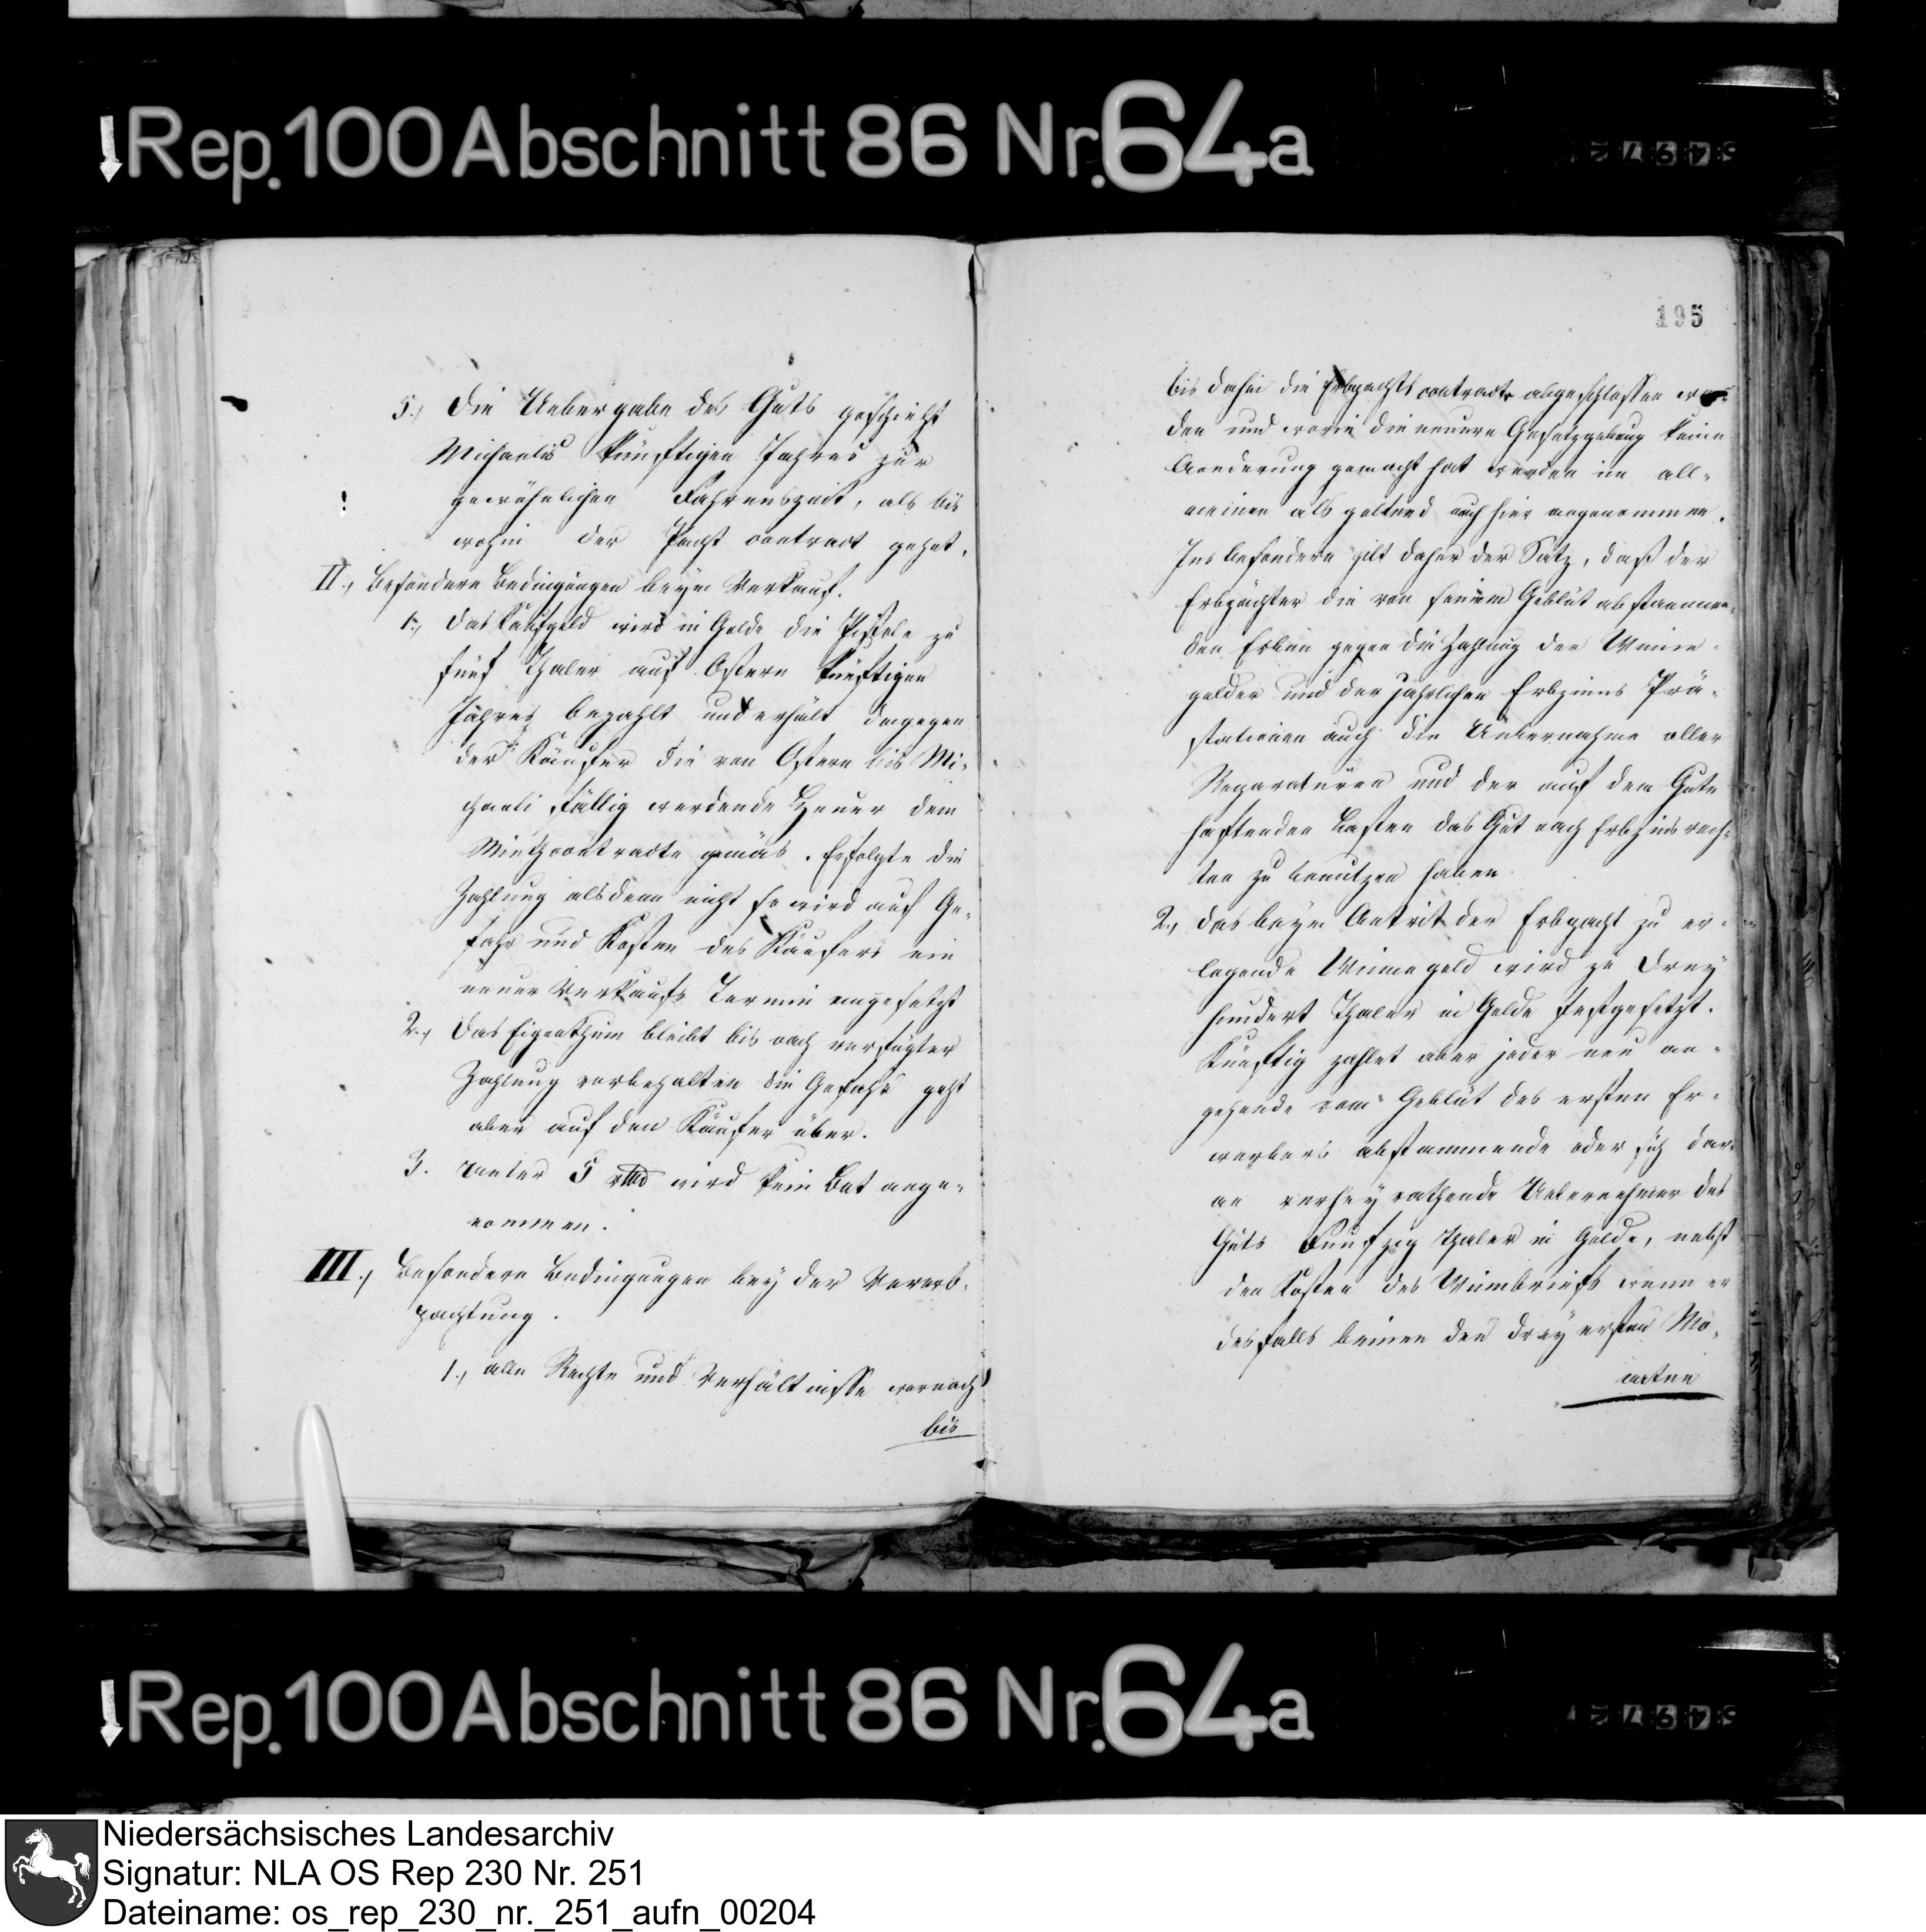 Rep. 100 Abschnitt 86 Nr. 64a
5., Die Uebergabe des Guts geschieht
Michaelis künftigen Jahres zur
gewöhnlichen Fahrenszeit, als bis
wohin der Pacht contract gehet.
II., Besondere Bedingungen beym Verkauf.
1., Das Kaufgeld wird in Golde die Pistole zu
fünf Thaler auf Ostern künftigen
Jahres bezahlt und erhält dagegen
der Käufer die von Ostern bis Mi-
chaeli fällig werdende Heuer dem
Miethcontracte gemäs. Erfolgte die
Zahlung alsdenn nicht so wird auf Ge-
fahr und Kosten des Käufers ein
neuer Verkaufs Termin angesetzt
2., Das Eigenthum bleibt bis nach verfügter
Zahlung vorbehalten die Gefahr geht
aber auf den Käufer über.
3. Unter 5 rthlr wird kein Bot ange-
nommen.
III., Besondere Bedingungen bey der Vererb-
pachtung.
1., alle Rechte und Verhältnisse wornach
bis
195
bis dahin die Erbpachts contracte abgeschlossen wor-
den und worin die neuere Gesetzgebung keine
Aenderung gemacht hat werden im all-
meinen als geltend auch hier angenommen.
Ins besondere gilt daher der Satz, daß der
Erbpächter die von seinem Geblüt abstammen-
den Erben gegen die Zahlung der Winne-
gelder und der jährlichen Erbzins Prä-
stationen auch die Uebernahme aller
Reparaturen und der auf dem Gute
haftenden Lasten das Gut nach Erbzinsrech-
ten zu benutzen haben
2., das beym Antrit der Erbpacht zu er-
legende Winnegeld wird zu Drey
hundert Thaler in Golde festgesetzt.
Künftig zahlet aber jeder neu an-
gehende vom Geblüt des ersten Er-
werbers abstammende oder sich dar-
an verheyrathende Uebernehmer des
Guts Funfzig Thaler in Golde, nebst
den Kosten des Winnbriefs wenn er
desfalls binnen den drey ersten Mo-
naten
Rep. 100 Abschnitt 86 Nr. 64a
Niedersächsisches Landesarchiv
Signatur: NLA OS Rep 230 Nr. 251
Dateiname: os_rep_230_nr._251_aufn_00204